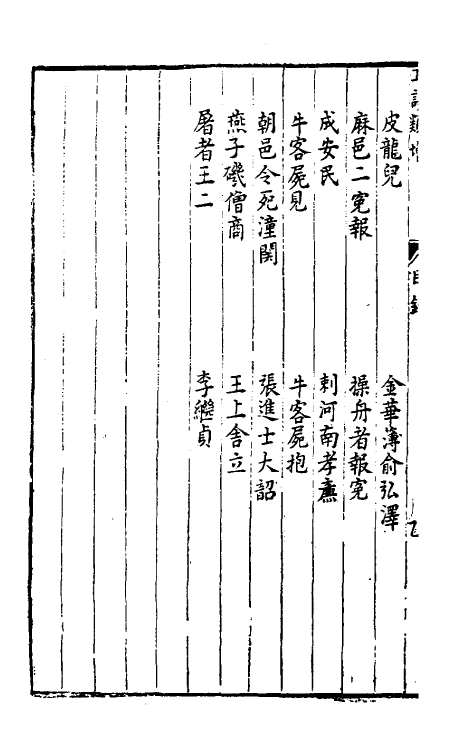 皮龍兒　金華簿俞弘澤
麻邑二寃報　操舟者報寃
成安民　刺河南孝廉
牛客屍見　牛客屍抱
朝邑令死潼関　張進士大韶
燕子磯僧商　王上舍立
屠者王二　李繼貞